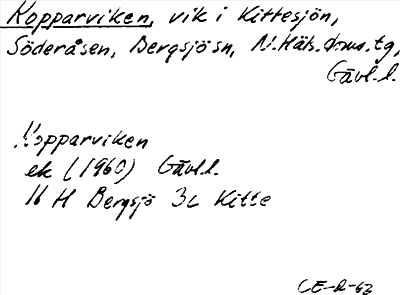 Kopparviken, vik i Kittesjön,
Söderåsen, Bergsjö sn, N. Häls. doms. tg,
Gävl. l.
Kopparviken
ek (1960) Gävl. l.
16 H Bergsjö 3c Kitte
CE-R-62